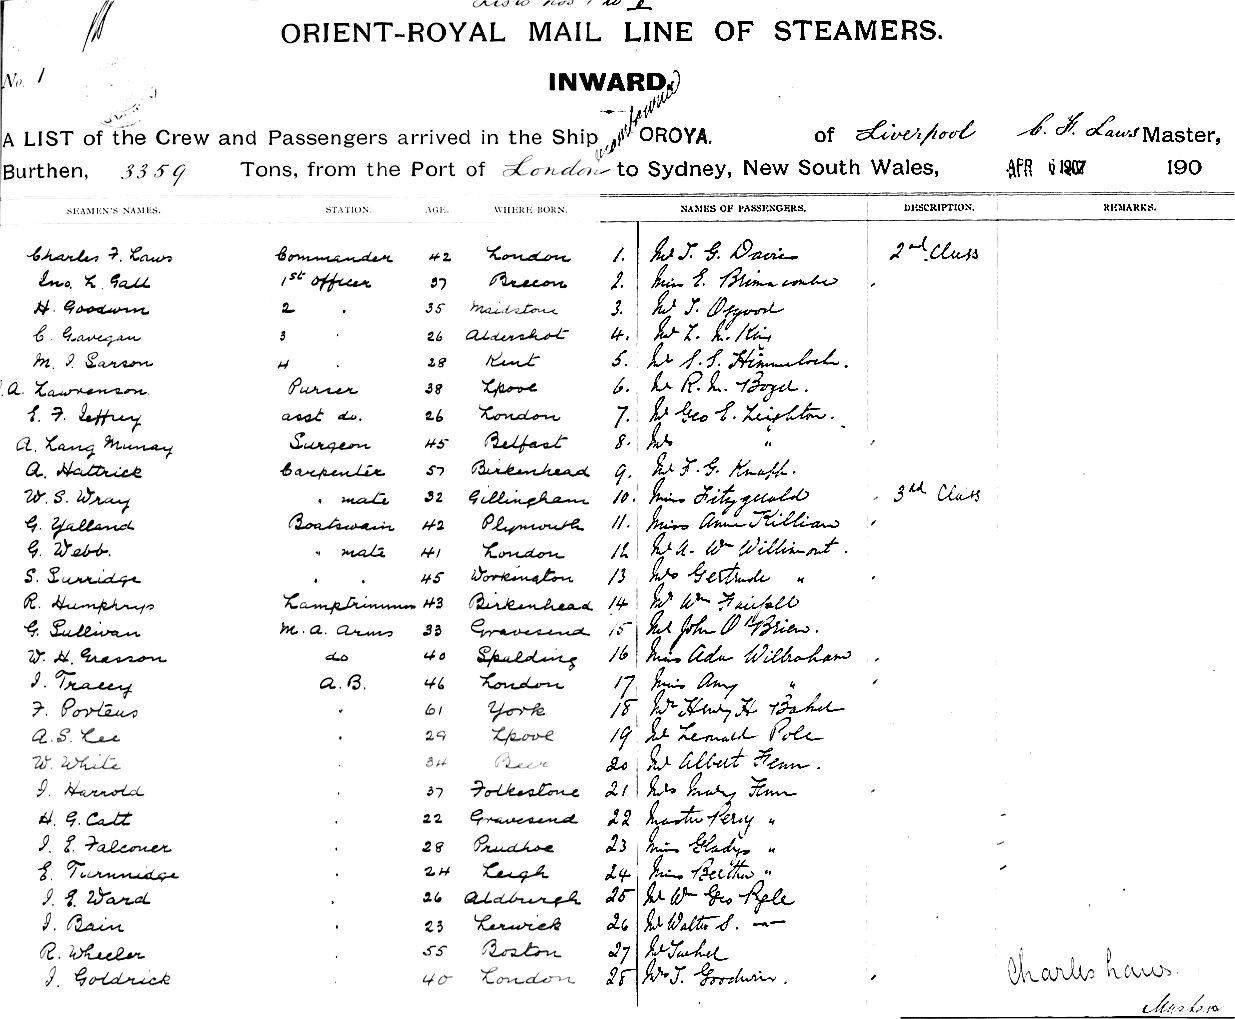 ORIENT-ROYAL MAIL LINE OF STEAMERS.
No. 1
INWARD
A LIST of the Crew and Passengers arrived in the Ship OROYA. of Liverpool C. F. Laws Master,
Burthen, 3359 Tons, from the Port of London to Sydney, New South Wales, APR 6 1907 190
SEAMEN'S NAMES. STATION. AGE. WHERE BORN. NAMES OF PASSENGERS. DESCRIPTION. REMARKS.
Charles F. Laws Commander 42 London 1. Mr J. G. Davies 2nd Class
Jno. L. Gall 1st Officer 37 Brecon 2. Miss E. Brimacombe
H. Goodwin 2 " 35 Maidstone 3. Mr T. Osgood
C. Gavegan 3 " 26 Aldershot 4. Mr L. N. King
M. J. Sarson 4 . 28 Kent 5. Mr S. S. Himmeloch.
A. Lawrenson Purser 38 Lpool 6. Mr R. M.
E. F. Jeffrey asst do. 26 London 7. Mr Geo E. Leighton.
A. Lang Murray Surgeon 45 Belfast 8. Mrs "
A. Hattrick Carpenter 57 Birkenhead 9. Mr F. G. Knapp.
W. S. Wray " mate 32 Gillingham 10. Miss Fitzgerald 3rd Class
G. Yalland Boatswain 42 Plymouth 11. Miss Annie Killian
G. Webb. " mate 41 London 12 Mr A. Wm Willimont.
S. Surridge " " 45 Workington 13 Mrs Gertrude "
R. Humphrys Lamptrimmer 43 Birkenhead 14 Mr Wm Fairfall
G. Sullivan M. A. Arms 33 Gravesend 15 Mr John O'Brien.
W. H. Grasson do 40 Spalding 16 Miss Ada Wilbraham
J. Tracey A.B. 46 London 17 Miss Amy "
F. Porteus " 61 York 18 Mr Henry H.
A. S. Lee " 29 Lpool 19 Mr Leonard Pole
W. White " 34 Beer 20 Mr Albert Fenn.
J. Harrold " 37 Folkestone 21 Mrs Mary Fenn
H. G. Catt " 22 Gravesend 22 Master Percy "
J. E. Falconer " 28 Prudhoe 23 Miss Gladys "
E. Turnnidge " 24 Leigh 24 Miss Bertha "
J. E. Ward " 26 Aldburgh 25 Mr Wm Geo
J. Bain " 23 Lerwick 26 Mr Walter S. —
R. Wheeler 55 Boston 27 Mr
J. Goldrick 40 London 28 Mrs J. Goodwin.
Charles Laws.
Master